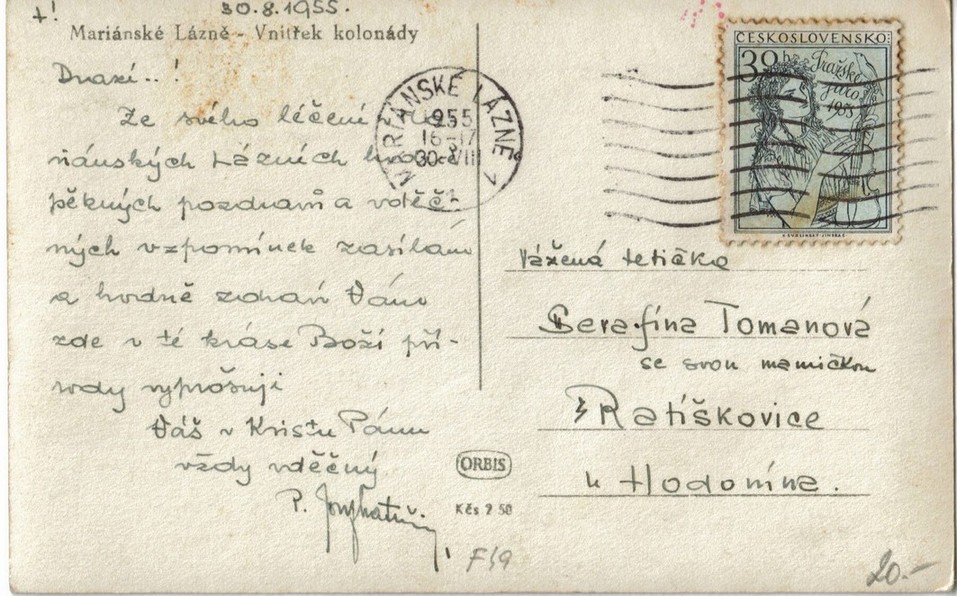 +!
30.8.1955.
Mariánské Lázně - Vnitřek kolonády
Drazí..!
Ze svého léčení v Ma-
riánských Lázních hodně
pěkných pozdravů a vděč-
ných vzpomínek zasílám
a hodně zdraví Vám
zde v té kráse Boží pří-
rody vyprošuji
Váš v Kristu Pánu
vždy vděčný
P.
ORBIS
Kčs
F19
MARIÁNSKÉ LÁZNĚ 1
1955
16-17
30.VIII
ČESKOSLOVENSKO
30 h
Pražské
jaro
1955
Vážená tetička
Serafína Tomanová
se svou mamičkou
Ratíškovice
u Hodonína.
20.-